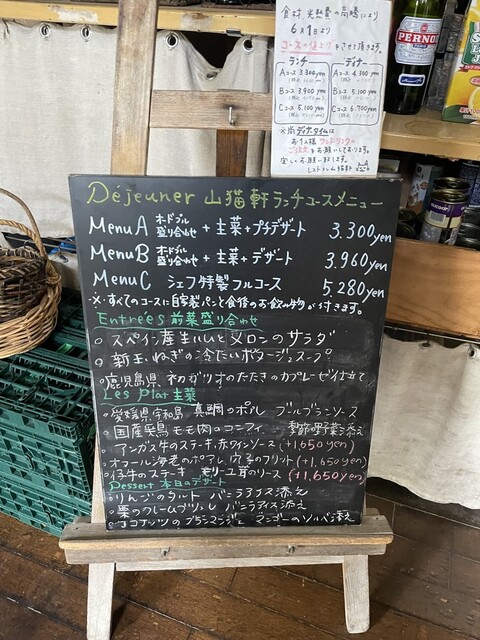 食材、光熱費の高騰により
6月1日より
コースの値上げをさせて頂きます。
ランチ
Aコース 3,300yen
Bコース 3,900yen
Cコース 5,100yen
ディナー
Aコース 4,300yen
Bコース 5,100yen
Cコース 6,700yen
※尚ディナータイムは
お1人様 ワンドリンクの
ご注文をお願いしております。
宜しくお願い致します。
レストラン山猫軒
PERNOD
Déjeuner 山猫軒ランチコースメニュー
MenuA オードブル盛り合わせ + 主菜 + プチデザート 3,300yen
MenuB オードブル盛り合わせ + 主菜 + デザート 3,960yen
MenuC シェフ特製フルコース 5,280yen
※すべてのコースに自家製パンと食後のお飲み物が付きます。
Entrées 前菜盛り合わせ
○スペイン産生ハムとメロンのサラダ
○新玉ねぎの冷たいポタージュスープ
○鹿児島県 初ガツオのたたきのカプレーゼ仕立て
Les Plat 主菜
○愛媛県宇和島 真鯛のポワレ ブールブランソース
○国産鶏モモ肉のコンフィ 季節の野菜添え
○アンガス牛のステーキ 赤ワインソース (+1,650yen)
○オマール海老のポアレ、穴子のフリット (+1,650yen)
○仔牛のステーキ モリーユ茸のソース (+1,650yen)
Dessert 本日のデザート
○りんごのタルト バニラアイス添え
○栗のクレームブリュレ バニラアイス添え
○ココナッツのブランマンジェ マンゴーのソルベ添え